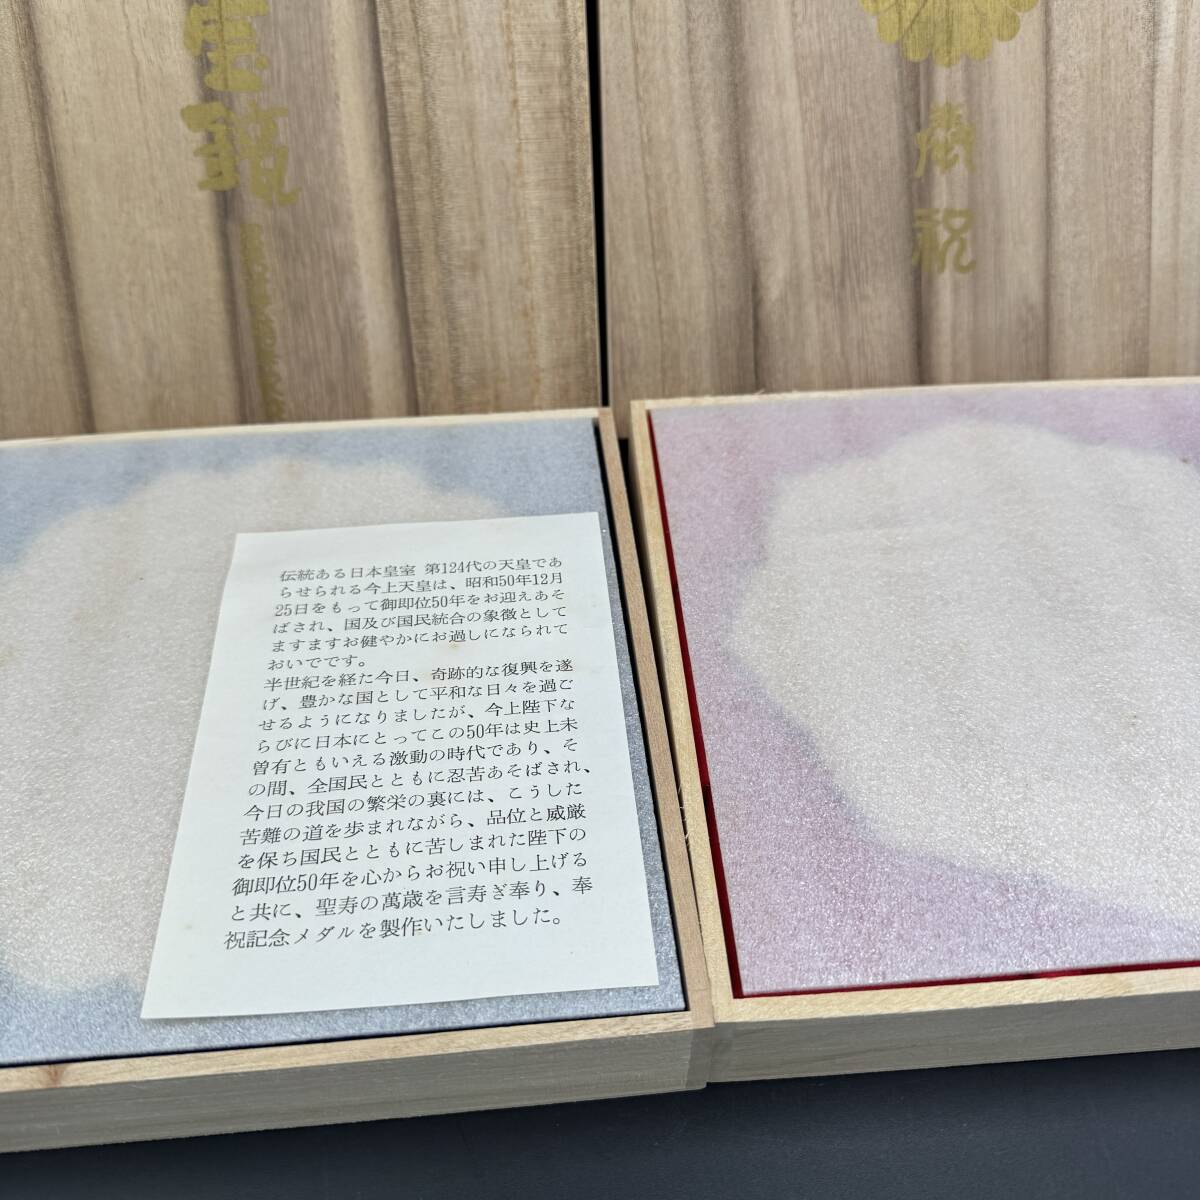 宝鏡
奉祝
伝統ある日本皇室 第124代の天皇であ
らせられる今上天皇は、昭和50年12月
25日をもって御即位50年をお迎えあそ
ばされ、国及び国民統合の象徴として
ますますお健やかにお過しになられて
おいでです。
半世紀を経た今日、奇跡的な復興を遂
げ、豊かな国として平和な日々を過ご
せるようになりましたが、今上陛下な
らびに日本にとってこの50年は史上未
曽有ともいえる激動の時代であり、そ
の間、全国民とともに忍苦あそばされ、
今日の我国の繁栄の裏には、こうした
苦難の道を歩まれながら、品位と威厳
を保ち国民とともに苦しまれた陛下の
御即位50年を心からお祝い申し上げる
と共に、聖寿の萬歳を言寿ぎ奉り、奉
祝記念メダルを製作いたしました。